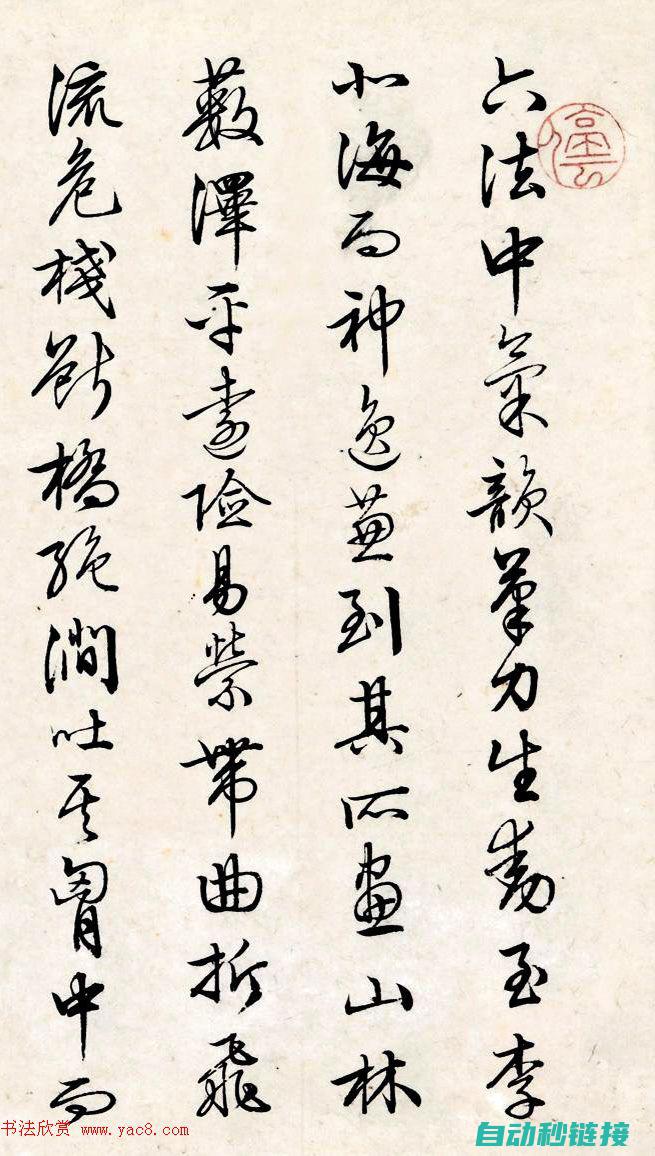 六法中氣韻筆力生動至李
北海而神逸兼到其所畫山林
藪澤平遠險易縈帶曲折飛
流危棧斷橋絶澗吐其胷中而
书法欣赏 www.yac8.com
自动秒链接